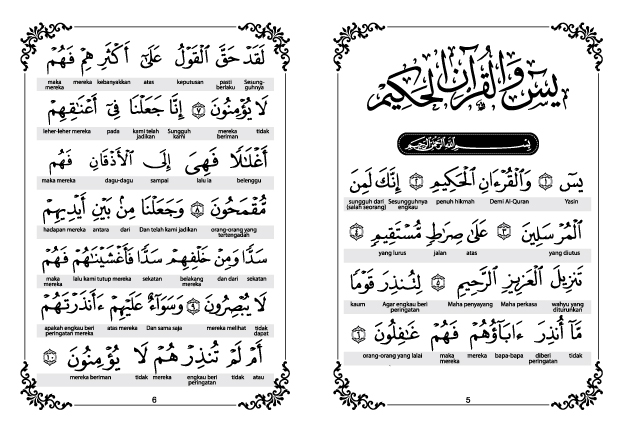 يسٓ وَالْقُرْآنِ الْحَكِيمِ
بِسْمِ اللَّهِ الرَّحْمَٰنِ الرَّحِيمِ
يسٓ ١ وَٱلْقُرْءَانِ ٱلْحَكِيمِ ٢ إِنَّكَ لَمِنَ
Yasin Demi Al-Quran penuh hikmah Sesungguhnya engkau sungguh dari (salah seorang)
ٱلْمُرْسَلِينَ ٣ عَلَىٰ صِرَٰطٍ مُّسْتَقِيمٍ ٤
yang diutus atas jalan yang lurus
تَنزِيلَ ٱلْعَزِيزِ ٱلرَّحِيمِ ٥ لِتُنذِرَ قَوْمًا
wahyu yang diturunkan Maha perkasa Maha penyayang Agar engkau beri peringatan kaum
مَّآ أُنذِرَ ءَابَآؤُهُمْ فَهُمْ غَٰفِلُونَ ٦
tidak diberi peringatan bapa-bapa mereka maka mereka orang-orang yang lalai
5
لَقَدْ حَقَّ ٱلْقَوْلُ عَلَىٰٓ أَكْثَرِهِمْ فَهُمْ
Sesung-guhnya pasti berlaku keputusan atas kebanyakkan mereka maka mereka
لَا يُؤْمِنُونَ ٧ إِنَّا جَعَلْنَا فِىٓ أَعْنَٰقِهِمْ
tidak mereka beriman Sungguh kami kami telah jadikan pada leher-leher mereka
أَغْلَٰلًا فَهِىَ إِلَى ٱلْأَذْقَانِ فَهُم
belenggu lalu ia sampai dagu-dagu maka mereka
مُّقْمَحُونَ ٨ وَجَعَلْنَا مِنۢ بَيْنِ أَيْدِيهِمْ
orang-orang yang tertengadah Dan telah kami jadikan dari antara hadapan mereka
سَدًّا وَمِنْ خَلْفِهِمْ سَدًّا فَأَغْشَيْنَٰهُمْ فَهُمْ
sekatan dan dari belakang mereka sekatan lalu kami tutup mereka maka mereka
لَا يُبْصِرُونَ ٩ وَسَوَآءٌ عَلَيْهِمْ ءَأَنذَرْتَهُمْ
tidak dapat mereka melihat Dan sama saja atas mereka apakah engkau beri peringatan mereka
أَمْ لَمْ تُنذِرْهُمْ لَا يُؤْمِنُونَ ١٠
atau tidak engkau beri peringatan mereka tidak mereka beriman
6